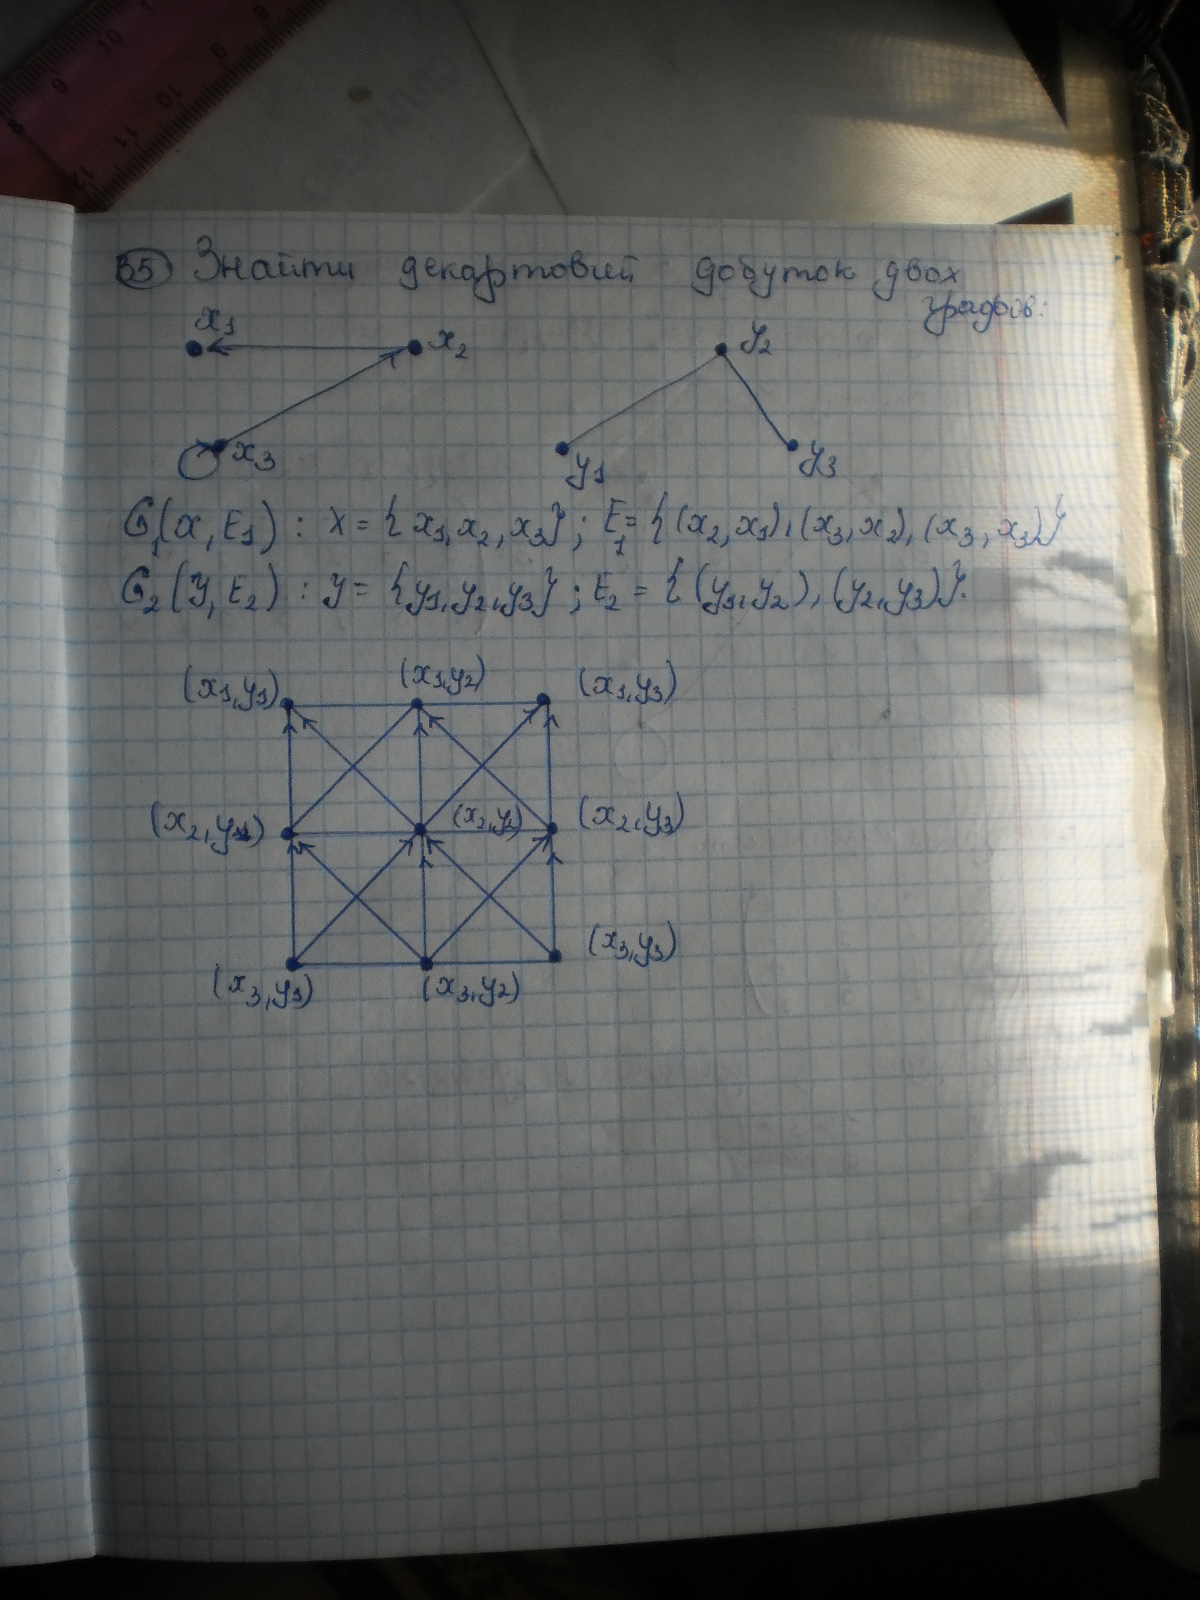 10 9 8
9 10 11 12
35 Знайти декартовий добуток двох
графов:
x1 x2 y2
x3 y1 y3
G1(x, E1) : X = { x1, x2, x3}; E1 = { (x2, x1), (x3, x2), (x3, x3)}
G2(y, E2) : y = {y1, y2, y3}; E2 = { (y1, y2), (y2, y3)}.
(x1, y1) (x1, y2) (x1, y3)
(x2, y1) (x2, y2) (x2, y3)
(x3, y3)
(x3, y1) (x3, y2)